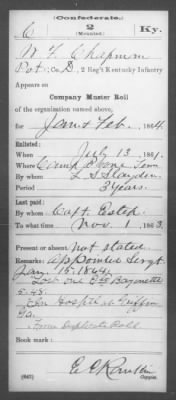 (Confederate.)
C 2 Ky.
(Mounted.)
W. L. Chapman
Pvt, Co. D, 2 Reg't Kentucky Infantry
Appears on
Company Muster Roll
of the organization named above,
for Jan & Feb, 1864.
Enlisted:
When July 13, 1861.
Where Camp Boone Tenn
By whom L. S. Slayden
Period 3 years.
Last paid:
By whom Capt. Estep
To what time Nov. 1, 1863.
Present or absent not stated
Remarks: appointed Sergt
Jany. 15. 1864.
Lost one Bayonette
In Hospital at Griffin
Ga.
From duplicate Roll
Book mark:
(642) Copyist.